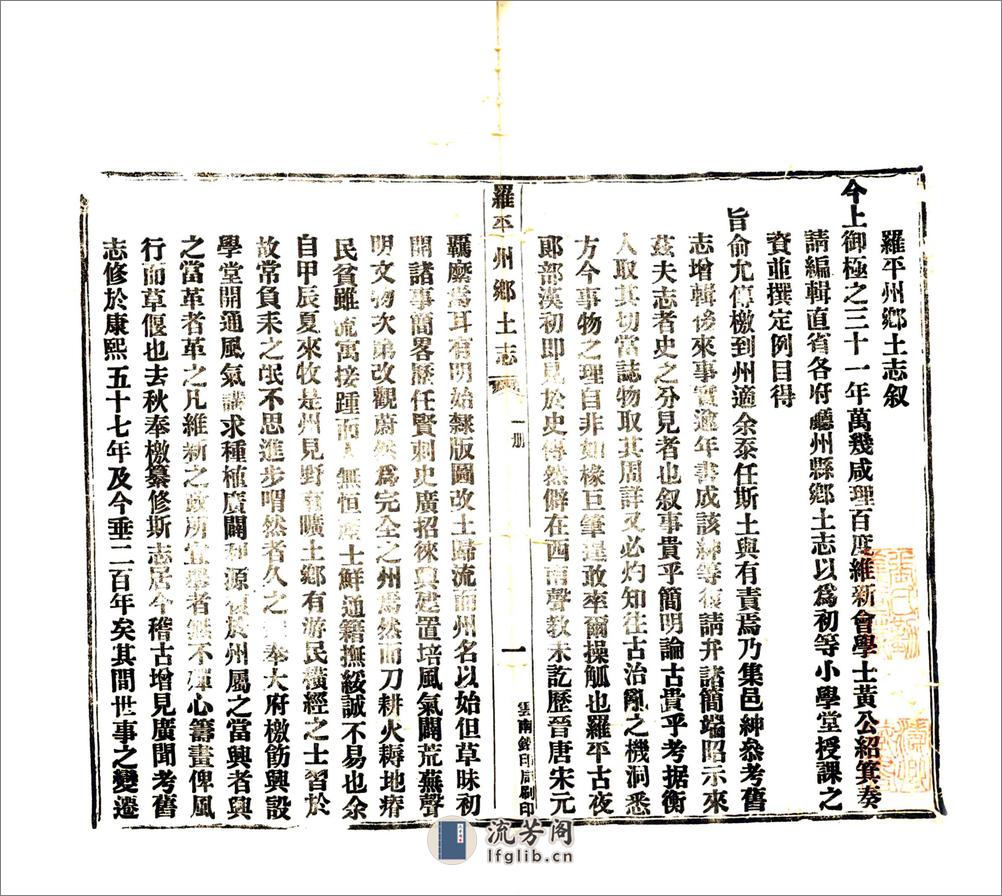 羅平州鄉土志叙
今上御極之三十一年萬幾咸理百度維新會學士黃公紹箕奏
請編輯直省各府廳州縣鄉土志以爲初等小學堂授課之
資並撰定例目得
旨俞允傳檄到州適余泰任斯土與有責焉乃集邑紳叅考舊
志增輯後來事實逾年書成該紳等復請弁諸簡端昭示來
茲夫志者史之分見者也叙事貴乎簡明論古貴乎考据衡
人取其切當誌物取其周詳又必灼知往古治亂之機洞悉
方今事物之理自非如椽巨筆遑敢率爾操觚也羅平古夜
郎部漢初即見於史傳然僻在西南聲教未訖歷晉唐宋元
羅平州鄉土志
一册
一
雲南官印局刷印
羈縻焉耳有明始隸版圖改土歸流而州名以始但草昧初
開諸事簡畧歷任賢刺史廣招徠興建置培風氣闢荒蕪聲
明文物次第改觀蔚然爲完全之州焉然而刀耕火耨地瘠
民貧雖流寓接踵而人無恒產士鮮通籍撫綏誠不易也余
自甲辰夏來牧是州見野有曠土鄉有游民橫經之士習於
故常負耒之氓不思進步喟然者久之奉大府檄飭興設
學堂開通風氣講求種植廣闢利源復於州屬之當興者興
之當革者革之凡維新之政所宜舉者無不殫心籌畫俾風
行而草偃也去秋奉檄纂修斯志居今稽古增見廣聞考舊
志修於康熙五十七年及今垂二百年矣其間世事之變遷
流芳阁
lfglib.cn